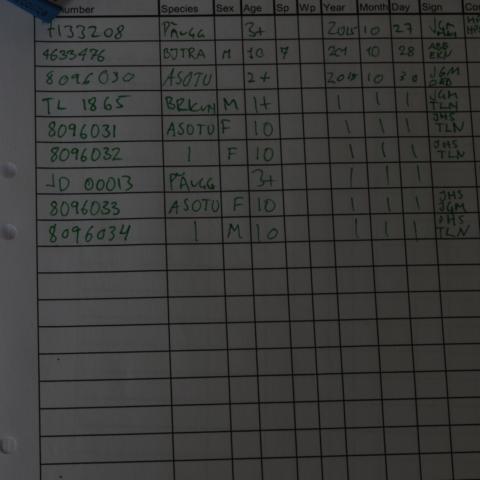 Number Species Sex Age Sp Wp Year Month Day Sign
7133208 PÄUGG 3+ 2015 10 27 JGM
4633476 BJTRA M 10 7 201 10 28 ABB EKN
8096030 ASOTU 2+ 2015 10 30 JGM
TL 1865 BRKUN M 1+ | | | JGM TLN
8096031 ASOTU F 10 | | | JHS TLN
8096032 | F 10 | | | JHS TLN
JD 00013 PÄUGG 3+ | | |
8096033 ASOTU F 10 | | | JHS JGM
8096034 | M 10 | | | JHS TLN